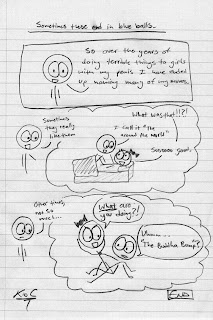 Sometimes these end in blue balls.
So over the years of
doing terrible things to girls
with my penis I have ended
up naming many of my moves.
Sometimes
they really
like them
What was that!!?!
I call it "the
around the world"
Soooooo good.
Other times,
not so
much...
What are
you doing?!
Umm....
"The Buddha Bump?"
End